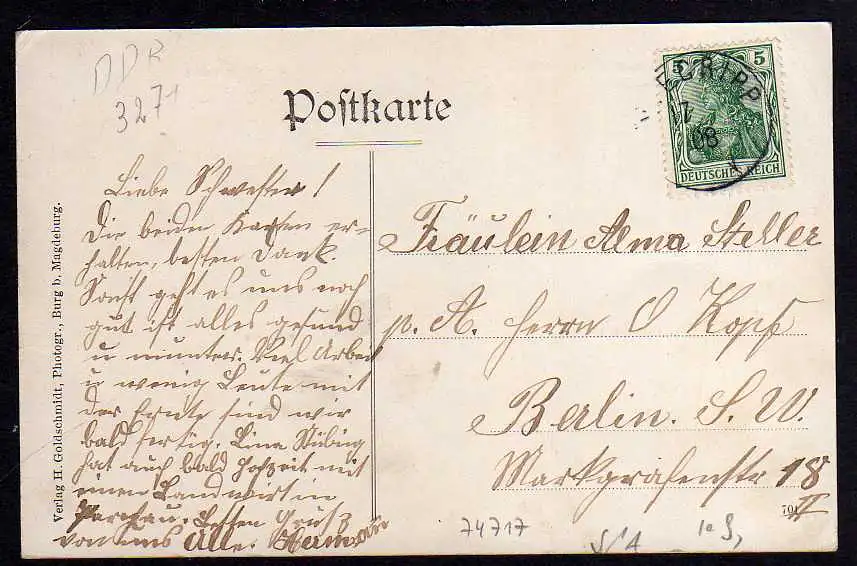 DDR
3271
Postkarte
5 5
DEUTSCHES REICH
17
08
Liebe Schwester!
Die beiden Karten er-
halten, besten Dank.
Sonst geht es uns noch
gut ist alles gesund
u munter. Viel Arbeit
u wenig Leute mit
der Ernte sind wir
bald fertig. Lina Stübing
hat auch bald Hochzeit mit
einen Landwirt in
Parchau. Besten Gruß
von uns Alle. Hermann
Fräulein Alma Steller
p. A. Herrn O Kopf
Berlin. S. W.
Markgrafenstr 18
II
Verlag H. Goldschmidt, Photogr., Burg b. Magdeburg.
74717